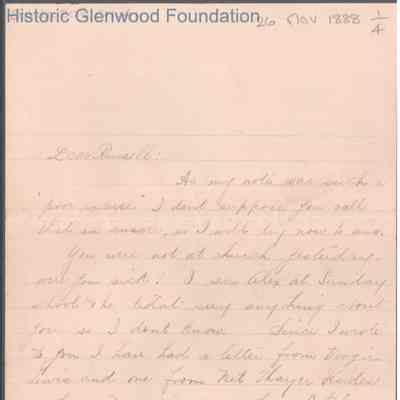 Historic Glenwood Foundation
26 Nov 1888 1/4
Dear Russell:
As my note was such a
"poor excuse" I don't suppose you call
that an answer, so I will try now to ans.
You were not at church yesterday.
are you sick? I saw Alex at Sunday
school "he" didn't say anything about
you so I don't know. Since I wrote
to you I have had a letter from
and one from Net Thayer besides